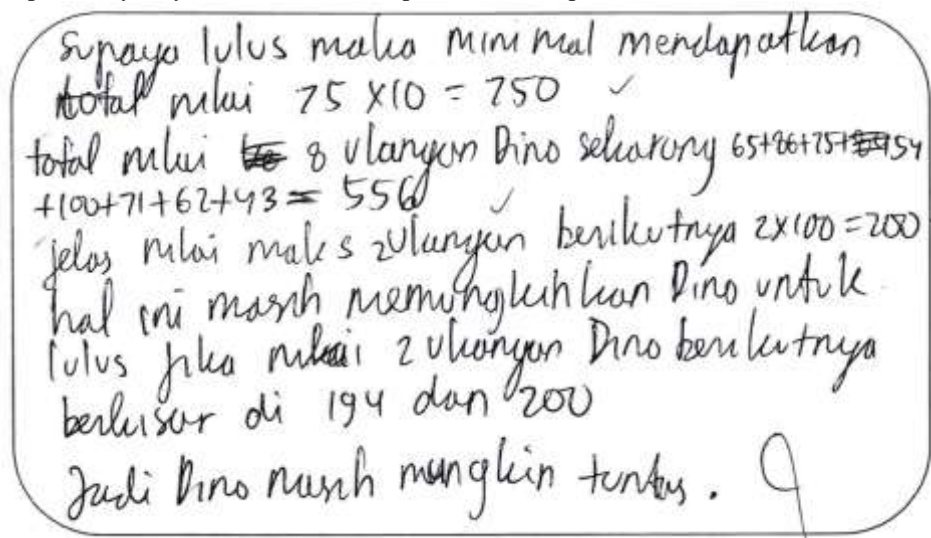 supaya lulus maka minimal mendapatkan
total nilai 75 X10 = 750 ✓
total nilai 8 ulangan Dino sekarang 65+86+75+54
+100+71+62+43 = 556 ✓
jelas nilai maks 2 ulangan berikutnya 2x100=200
hal ini masih memungkinkan Dino untuk
lulus jika nilai 2 ulangan Dino berikutnya
berkisar di 194 dan 200
Jadi Dino masih mungkin tuntas.